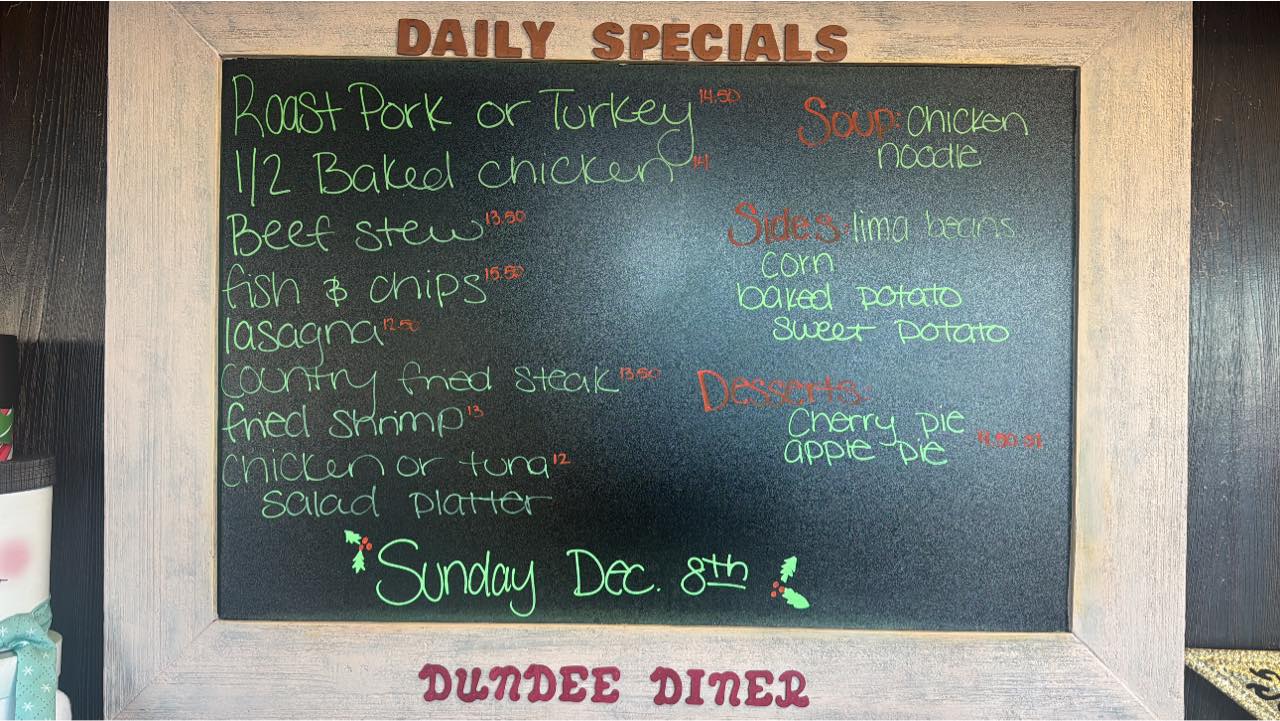 DAILY SPECIALS
Roast Pork or Turkey 14.50
1/2 Baked chicken 14
Beef stew 13.50
fish & chips 15.50
lasagna 12.50
country fried steak 13.50
fried shrimp 13
chicken or tuna 12
salad platter
Soup: chicken
noodle
Sides: lima beans
corn
baked potato
sweet potato
Desserts:
Cherry pie
apple pie
Sunday Dec. 8th
DUNDEE DINER